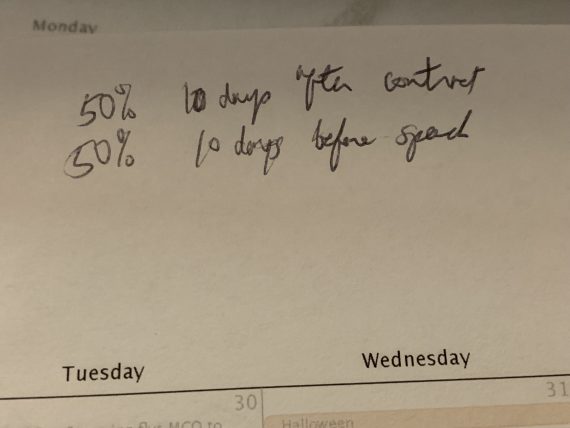 Monday
50% 10 days after contract
50% 10 days before speech
Tuesday
Wednesday
30
31
MCO to
Halloween